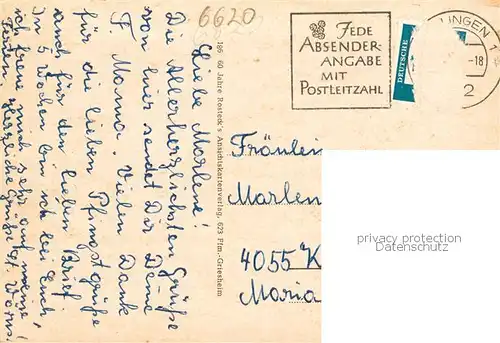 6620
Liebe Marlene!
Die Allerherzlichsten Grüße
von hier sendet Dir Deine
T. Momo. Vielen Dank
für die lieben Pfingstgrüße
auch für den lieben Brief.
In 5 Wochen bin ich bei Euch,
ich freue mich sehr auf meine
Ferien. Herzliche Grüße
186 60 Jahre Rosteck's Ansichtskartenverlag, 623 Ffm.-Griesheim
JEDE
ABSENDER-
ANGABE
MIT
POSTLEITZAHL
DEUTSCHE
LINGEN
-18
2
Fräulein
Marlen
4055 K
Maria
privacy protection
Datenschutz